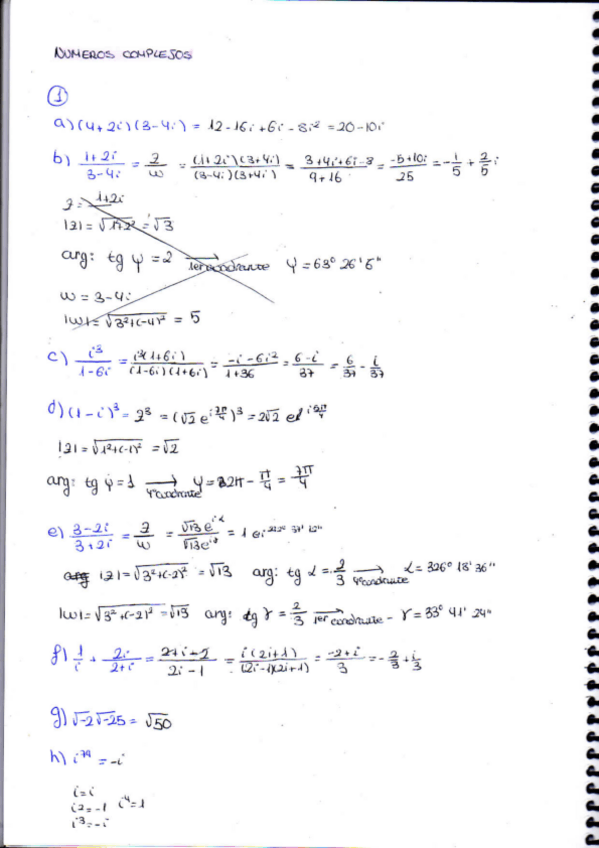 NUMEROS COMPLEJOS
1
a) (4+2i)(3-4i) = 12-16i+6i-8i² = 20-10i
b) (1+2i)/(3-4i) = z/w = (1+2i)(3+4i)/(3-4i)(3+4i) = (3+4i+6i-8)/(9+16) = (-5+10i)/25 = -1/5 + 2/5 i
z = 1+2i
|z| = √1+2² = √3
arg: tg φ = 2 → 1er cuadrante φ = 63° 26' 6"
w = 3-4i
|w| = √3²+(-4)² = 5
c) i³/(1-6i) = i³(1+6i)/(1-6i)(1+6i) = (-i-6i²)/(1+36) = (6-i)/37 = 6/37 - i/37
d) (1-i)³ = z³ = (√2 e^(i 7π/4))³ = 2√2
|z| = √1²+(-1)² = √2
arg: tg φ = 1 → 4º cuadrante φ = 2π - π/4 = 7π/4
e) (3-2i)/(3+2i) = z/w = √13 e^(iα)/√13 e^(iγ) = 1 e^i
|z| = √3²+(-2)² = √13 arg: tg α = 2/3 → 4º cuadrante α = 326° 18' 36"
|w| = √3²+(-2)² = √13 arg: tg γ = 2/3 → 1er cuadrante - γ = 33° 41' 24"
f) 1/i + 2i/(2+i) = (2+i-2)/(2i-1) = i(2i+1)/(2i-1)(2i+1) = (-2+i)/3 = -2/3 + i/3
g) √-2 √-25 = √50
h) i⁷⁹ = -i
i = i
i² = -1 i⁴ = 1
i³ = -i